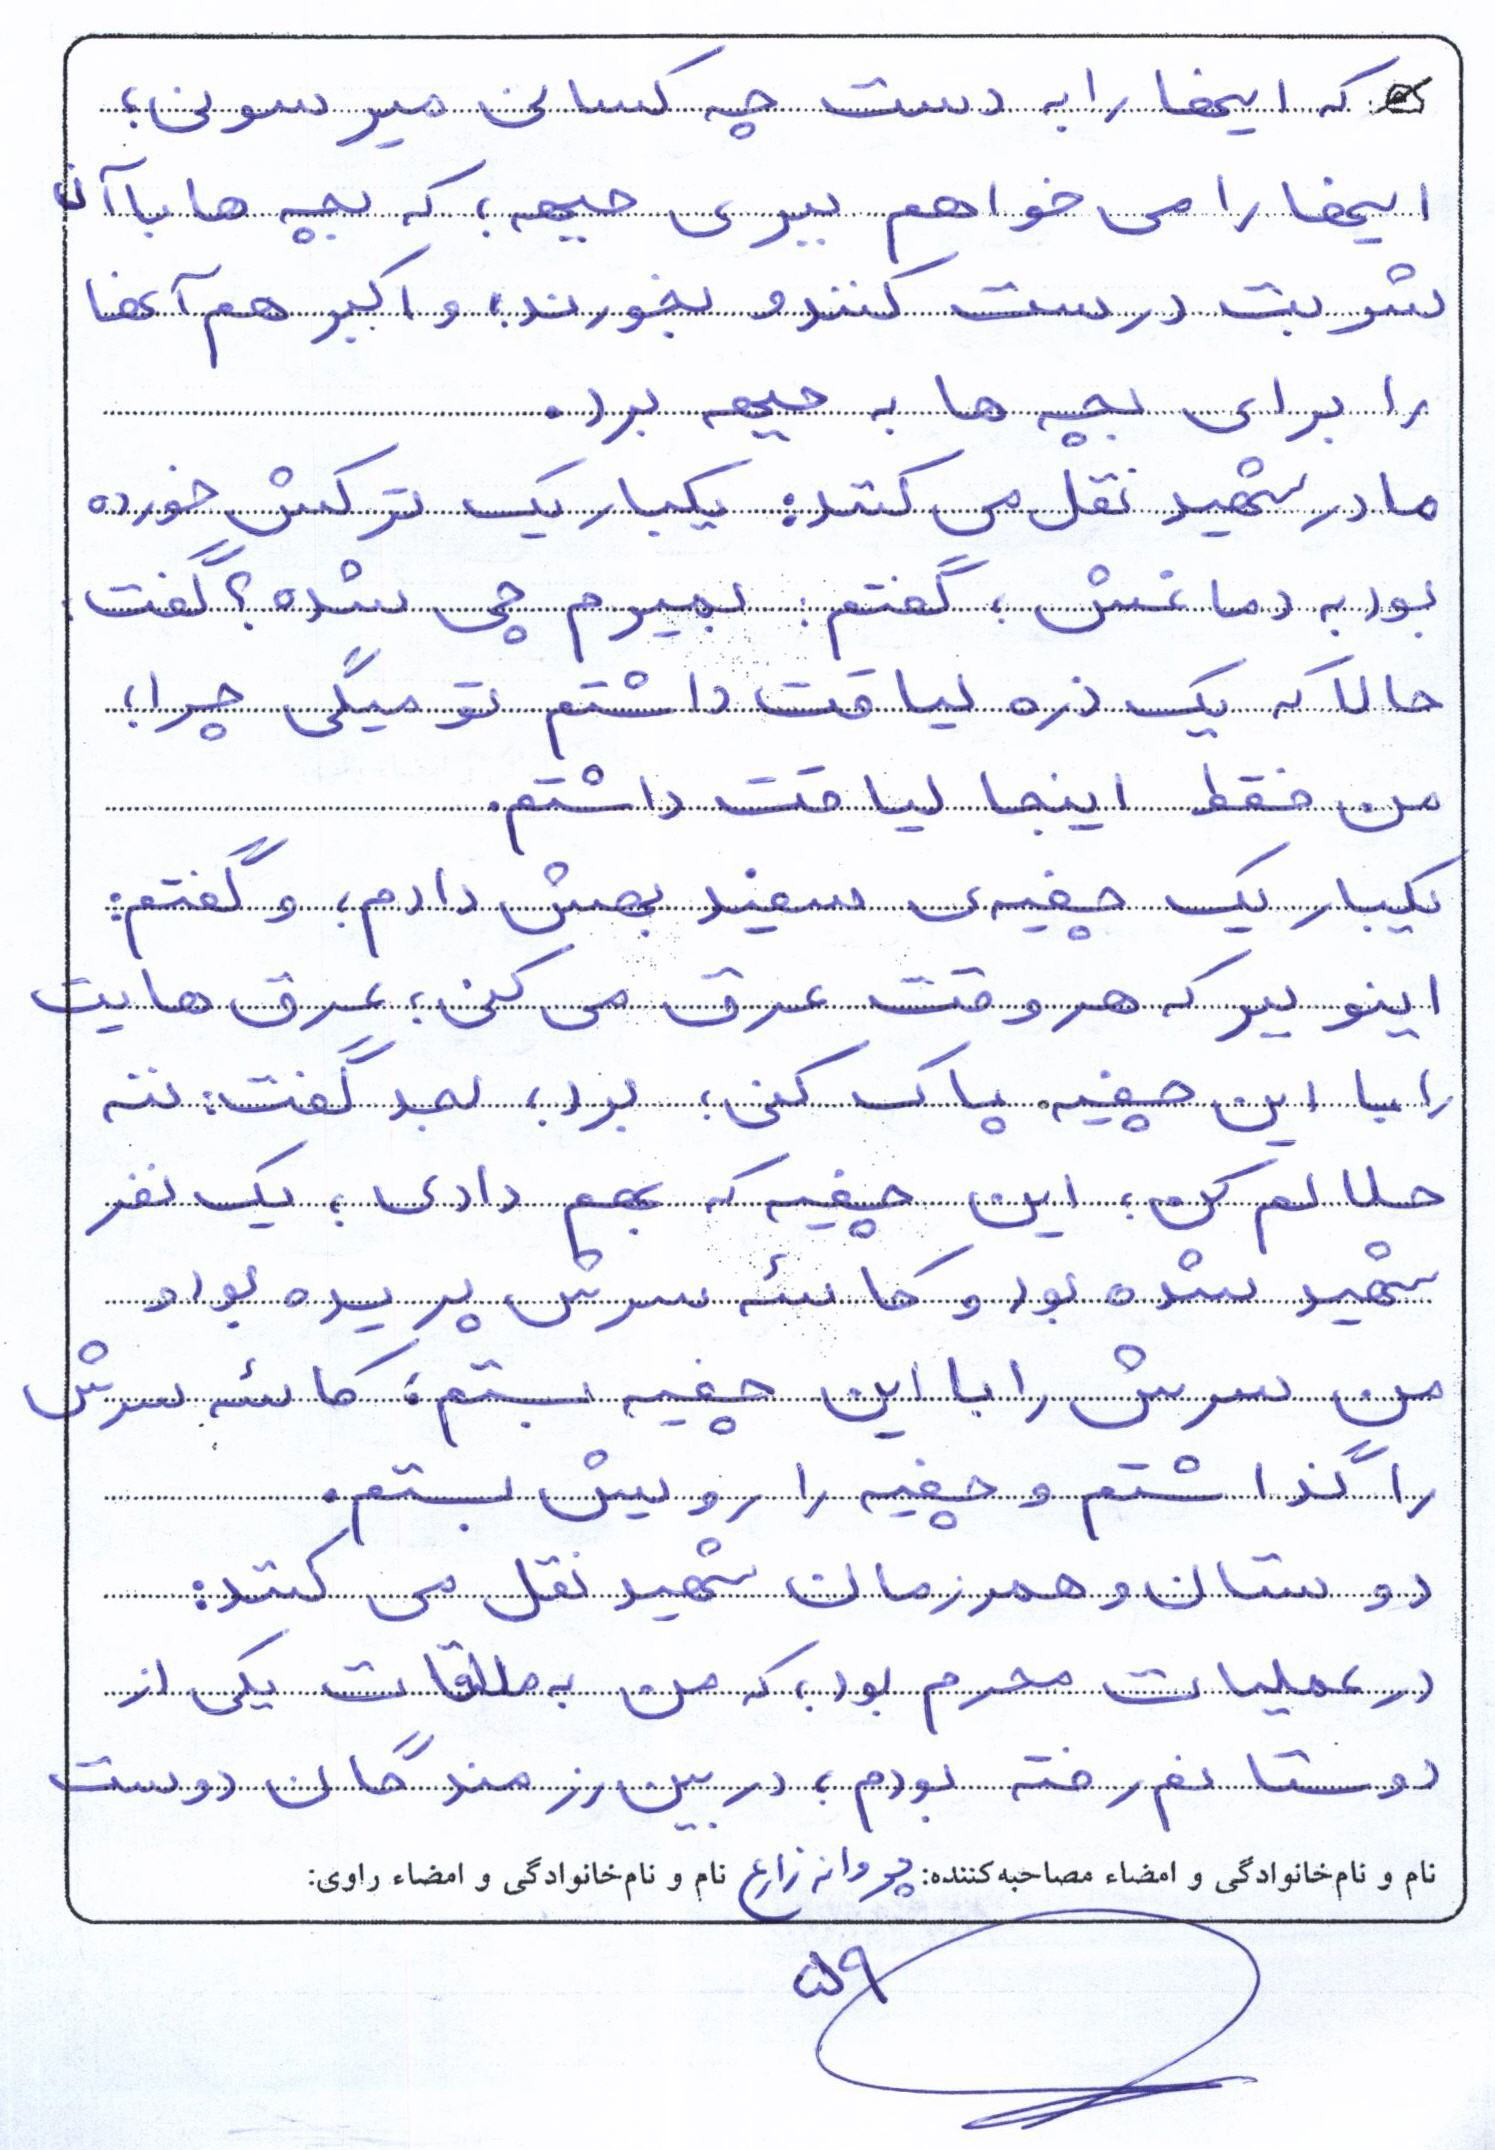 که اینها را به دست چه کسانی میرسونی؛
اینها را می خواهم ببری جبهه؛ که بچه ها با آن
شربت درست کنند و بخورند؛ و اکبر هم آنها
را برای بچه ها به جبهه برد.
مادر شهید نقل می کنند: یکبار یک ترکش خورده
بود به دماغش؛ گفتم: بمیرم چی شده؟ گفت:
حالا که یک ذره لیاقت داشتم تو میگی چرا؛
من فقط اینجا لیاقت داشتم.
یکبار یک چفیه‌ی سفید بهش دادم؛ و گفتم:
اینو ببر که هر وقت عرق می کنی؛ عرق هایت
را با این چفیه پاک کنی؛ برد؛ بعد گفت: ننه
حلالم کن؛ این چفیه که بهم دادی؛ یک نفر
شهید شده بود و کاسۀ سرش پریده بود و
من سرش را با این چفیه بستم؛ کاسۀ سرش
را گذاشتم و چفیه را رویش بستم.
دوستان و همرزمان شهید نقل می کنند:
در عملیات محرم بود؛ که من به ملاقات یکی از
دوستانم رفته بودم؛ در بین رزمندگان دوست
نام و نام‌خانوادگی و امضاء مصاحبه‌کننده: پروانه زارع نام و نام‌خانوادگی و امضاء راوی:
۵۹